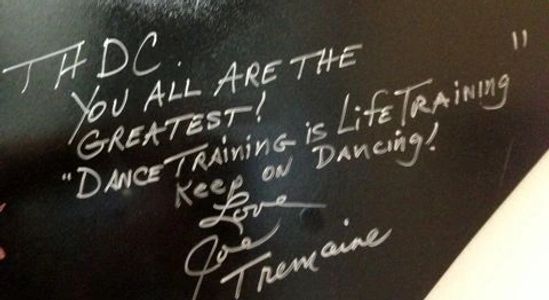 THDC.
YOU ALL ARE THE
GREATEST!
"DANCE TRAINING is Life TRAINING"
Keep ON Dancing!
Love
Joe
Tremaine